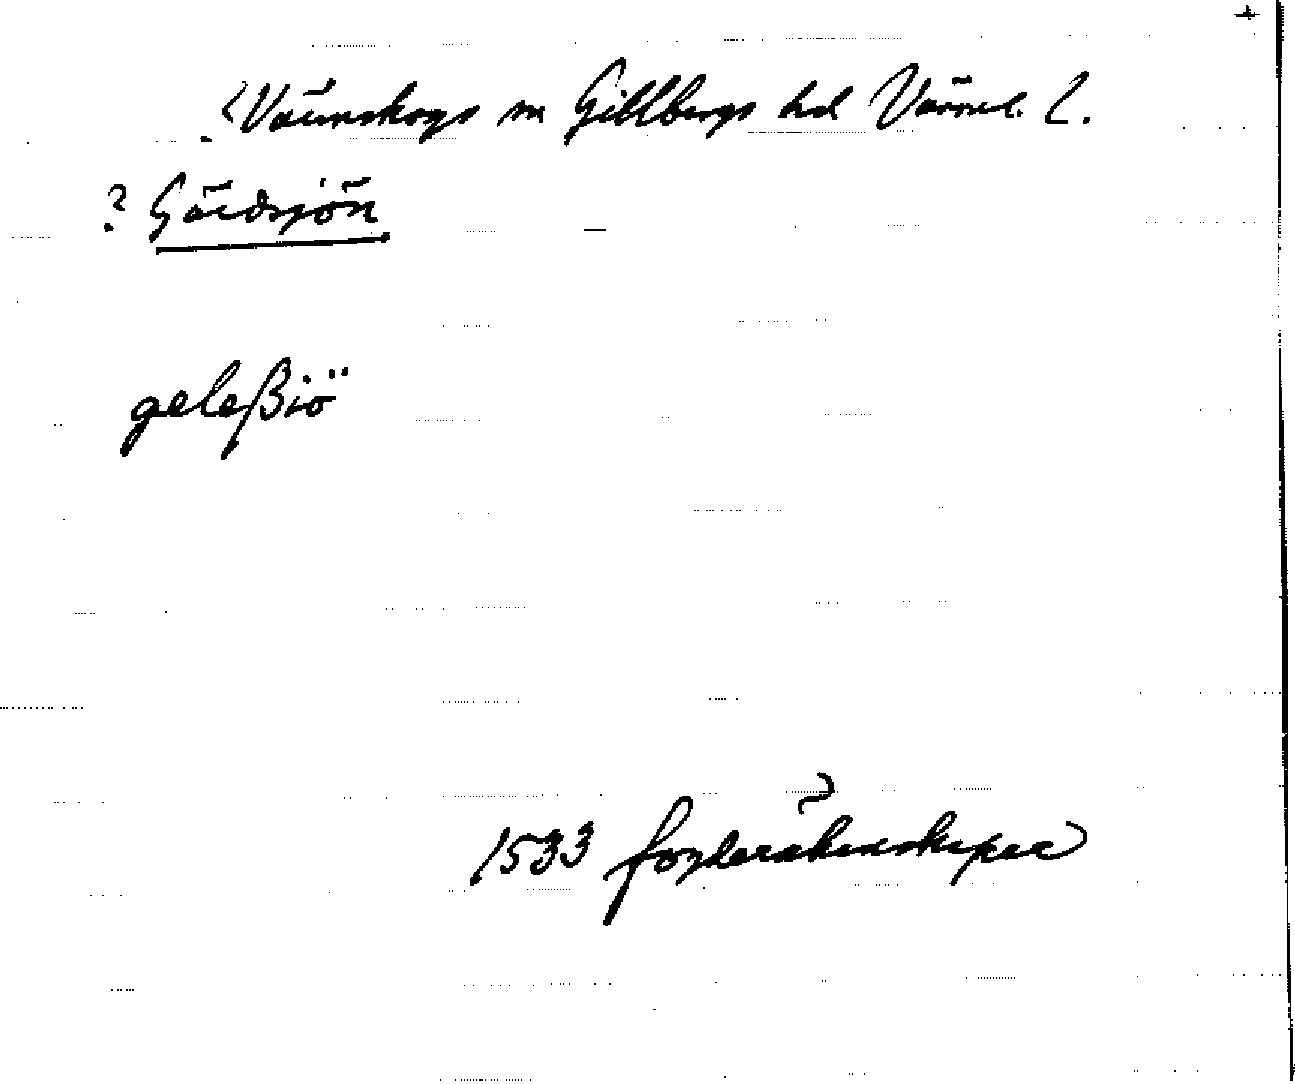 +
Värmskogs sn Gillbergs hd Värml. l.
? Gärdsjön
geleßiö
1533 fogderäkenskaper